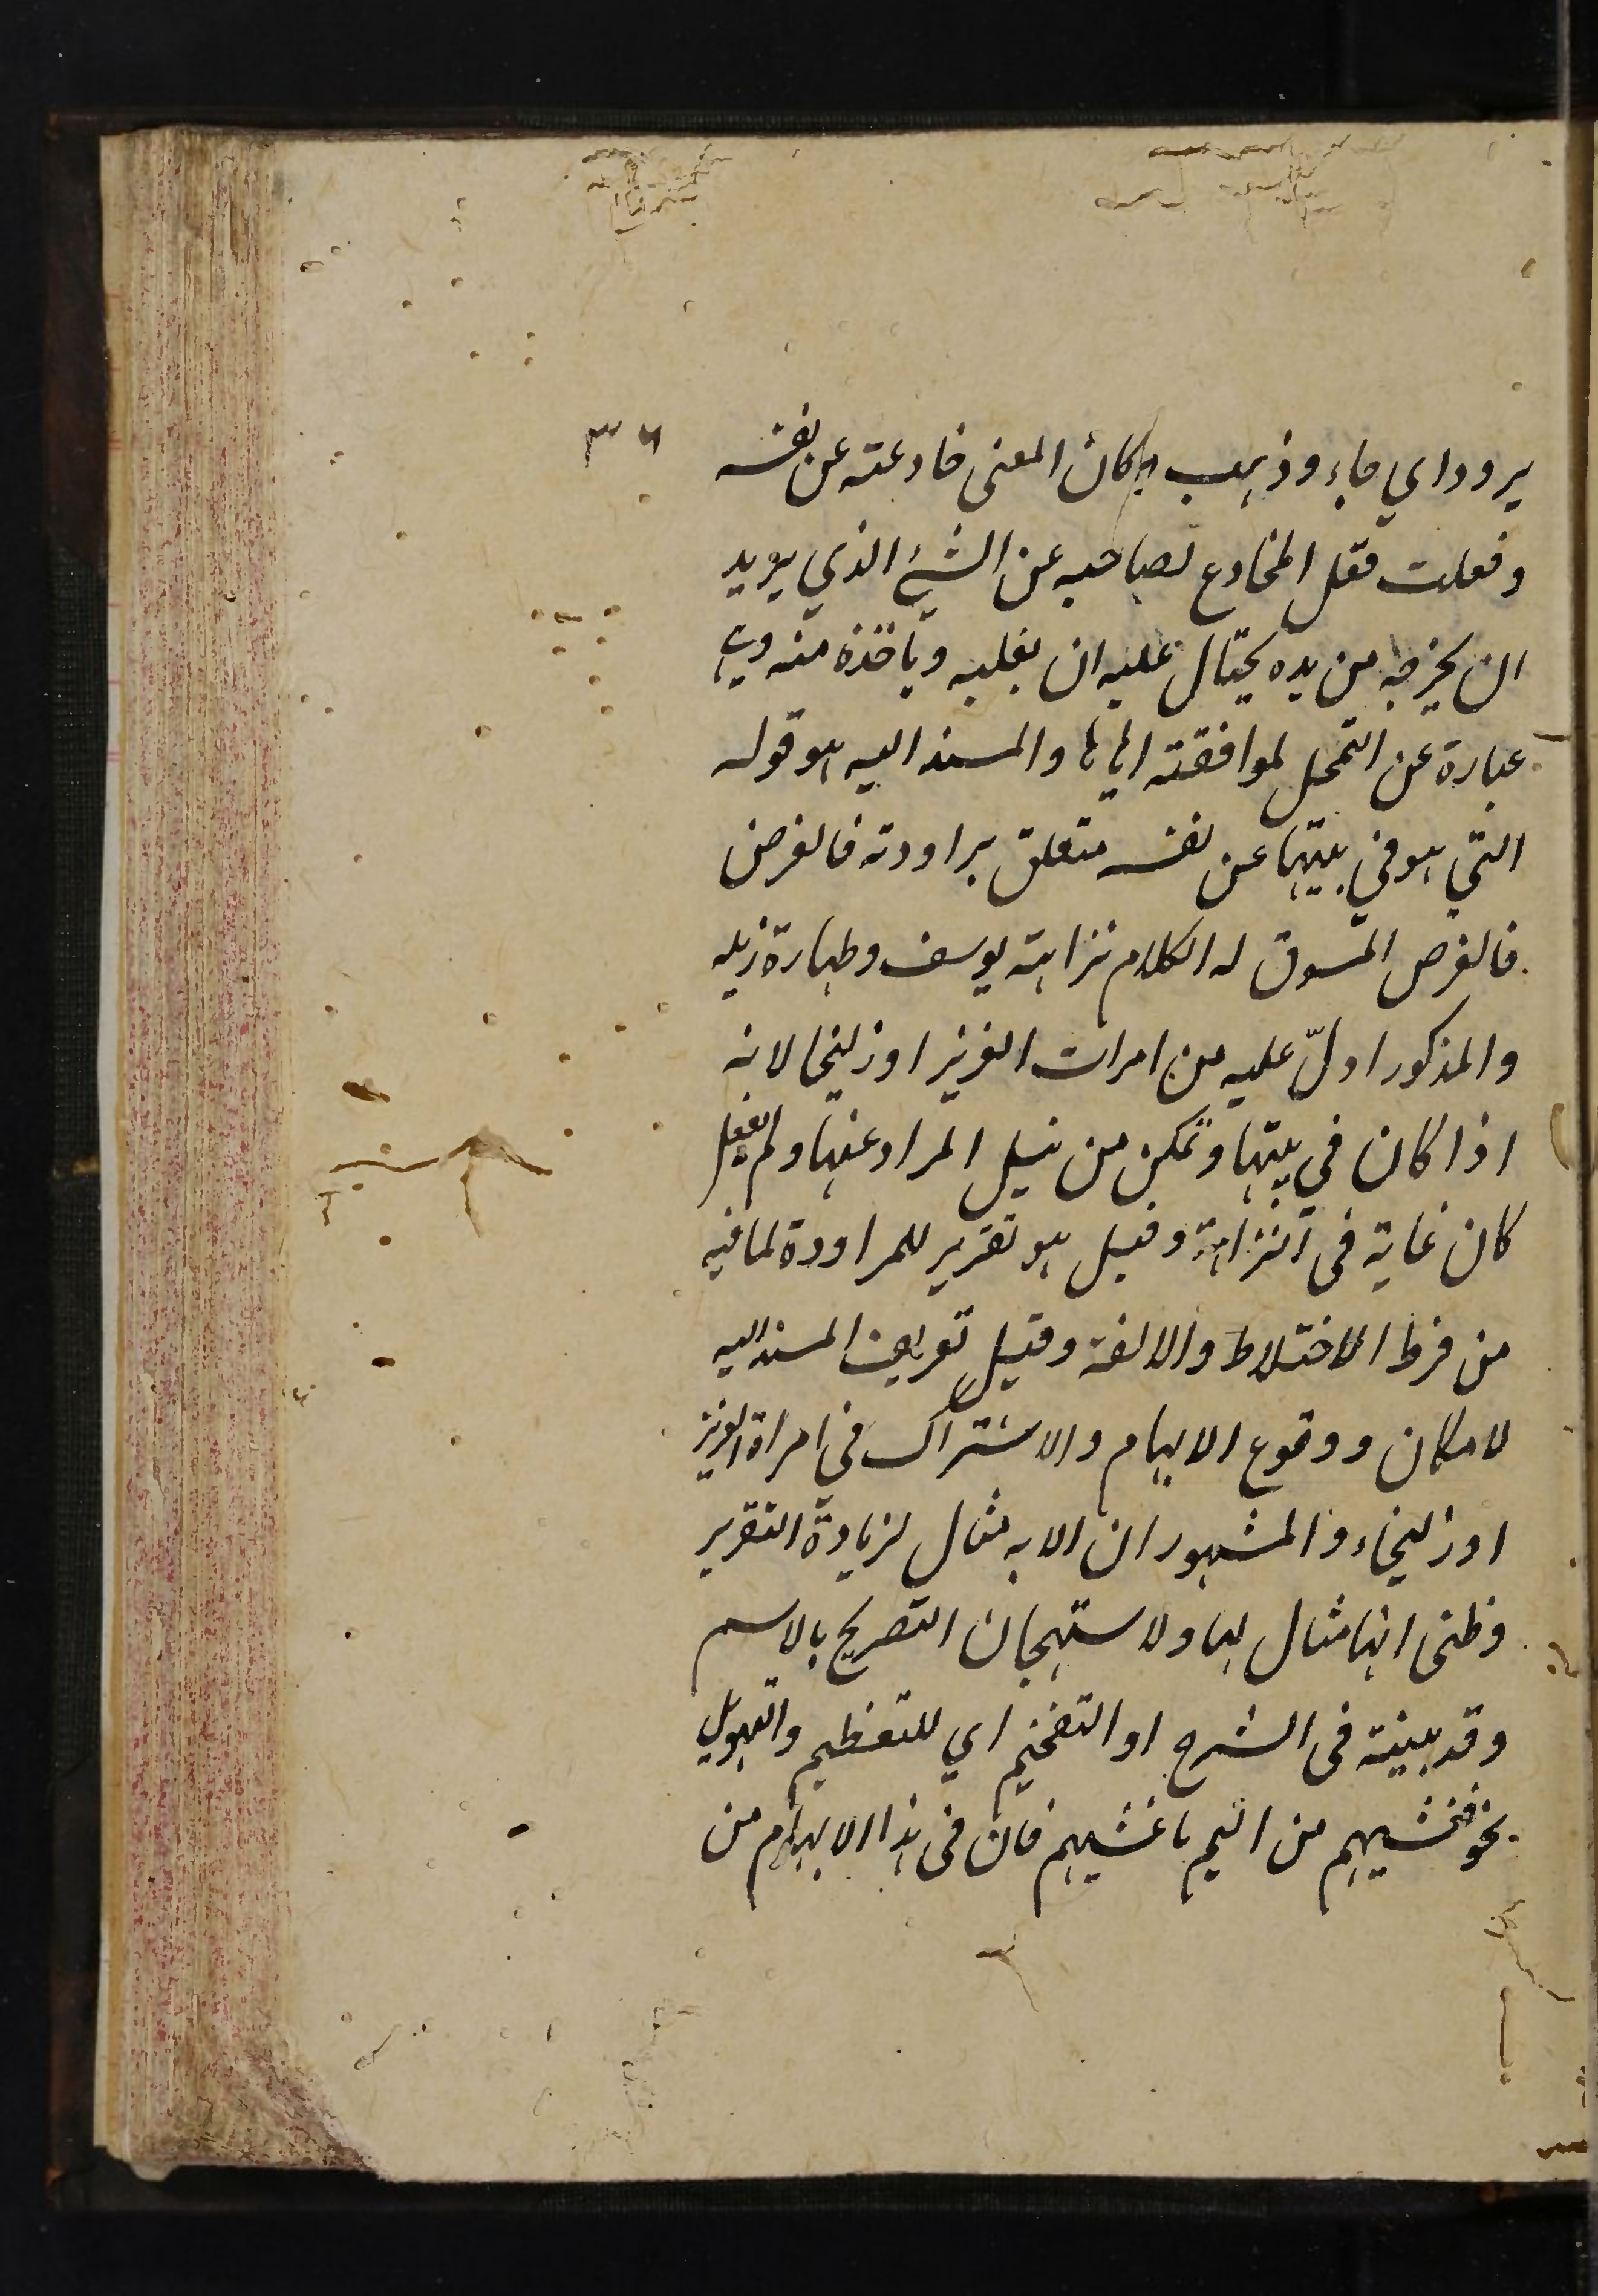 ٣٦
يرود اي جاء وذهب وكان المعنى خادعته عن نفسه
وفعلت فعل المخادع لصاحبه عن الشيء الذي يريد
ان يخرجه من يده يحتال عليه ان يغلبه وياخذه منه وهي
عبارة عن التمحل لموافقته اياها والمسند اليه هو قوله
التي هو في بيتها عن نفسه متعلق براودته فالغرض
فالغرض المسوق له الكلام نزاهته يوسف وطهارة ذيله
والمذكور ادلّ عليه من امرات العزيز او زليخا لانه
اذا كان في بيتها وتمكن من نيل المراد عنها ولم يفعل
كان غاية في النزاهة وقيل هو تقرير للمراودة لما فيه
من فرط الاختلاط والالفة وقيل تعريف المسند اليه
لامكان ووقوع الابهام والاشتراك في امراة العزيز
او زليخاء والمشهور ان الايه مثال لزيادة التقرير
وظني انها مثال لها ولاستهجان التصريح بالاسم
وقد بينته في الشرح او التفخيم اي للتعظيم والتهويل
نحو فغشيهم من اليم ما غشيهم فان في هذا الابهام من